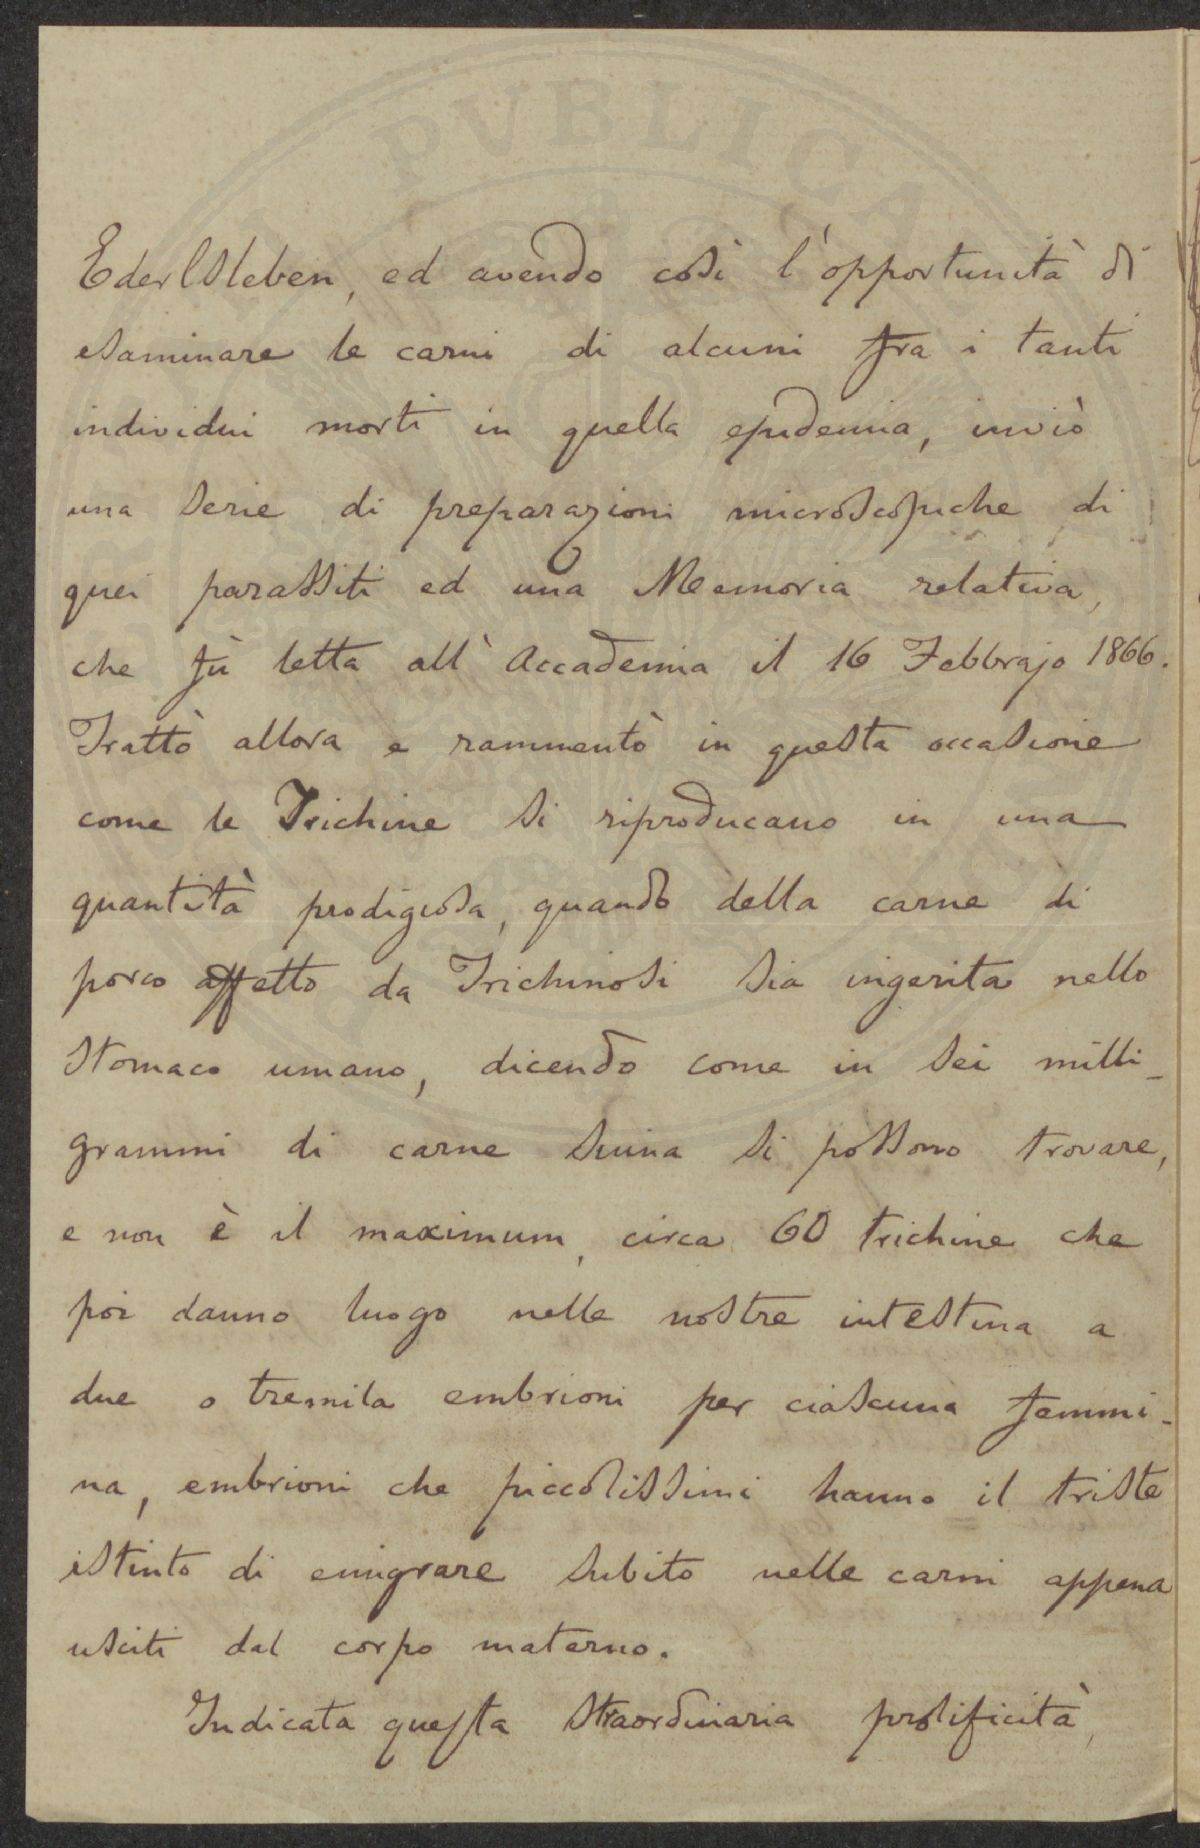 PVBLICA
Ederlsleben, ed avendo così l'opportunità di
esaminare le carni di alcuni fra i tanti
individui morti in quella epidemia, inviò
una serie di preparazioni microscopiche di
quei parassiti ed una Memoria relativa,
che fù letta all'Accademia il 16 Febbrajo 1866.
Trattò allora e rammentò in questa occasione
come le Trichine si riproducano in una
quantità prodigiosa, quando della carne di
porco affetto da Trichinosi sia ingerita nello
stomaco umano, dicendo come in sei milli-
grammi di carne suina si possono trovare,
e non è il maximum, circa 60 trichine che
poi danno luogo nelle nostre intestina a
due o tremila embrioni per ciascuna femmi-
na, embrioni che piccolissimi hanno il triste
istinto di emigrare subito nelle carni appena
usciti dal corpo materno.
Indicata questa straordinaria prolificità,